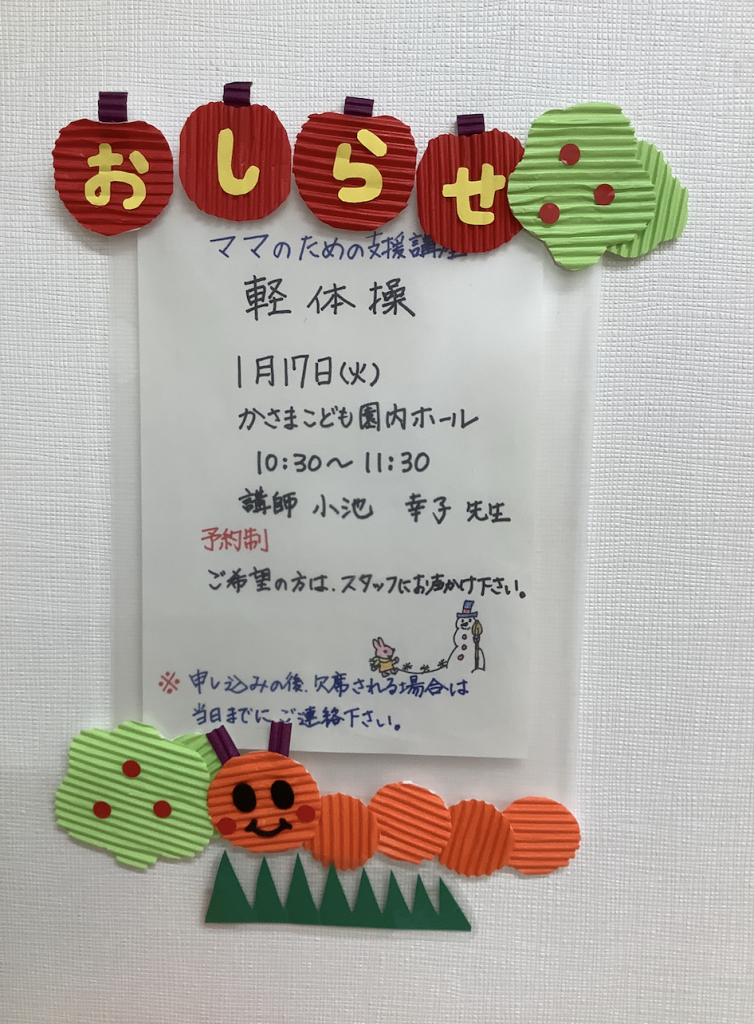 おしらせ
ママのための支援講座
軽体操
1月17日(火)
かさまこども園内ホール
10:30～11:30
講師 小池 幸子 先生
予約制
ご希望の方は、スタッフにお声かけ下さい。
※ 申し込みの後、欠席される場合は
当日までにご連絡下さい。